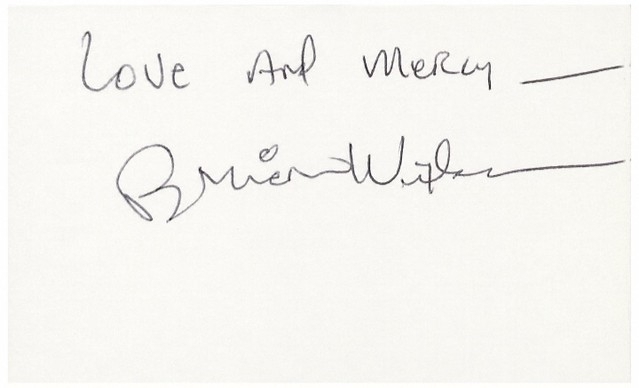 Love And Mercy —
Brian Wilson